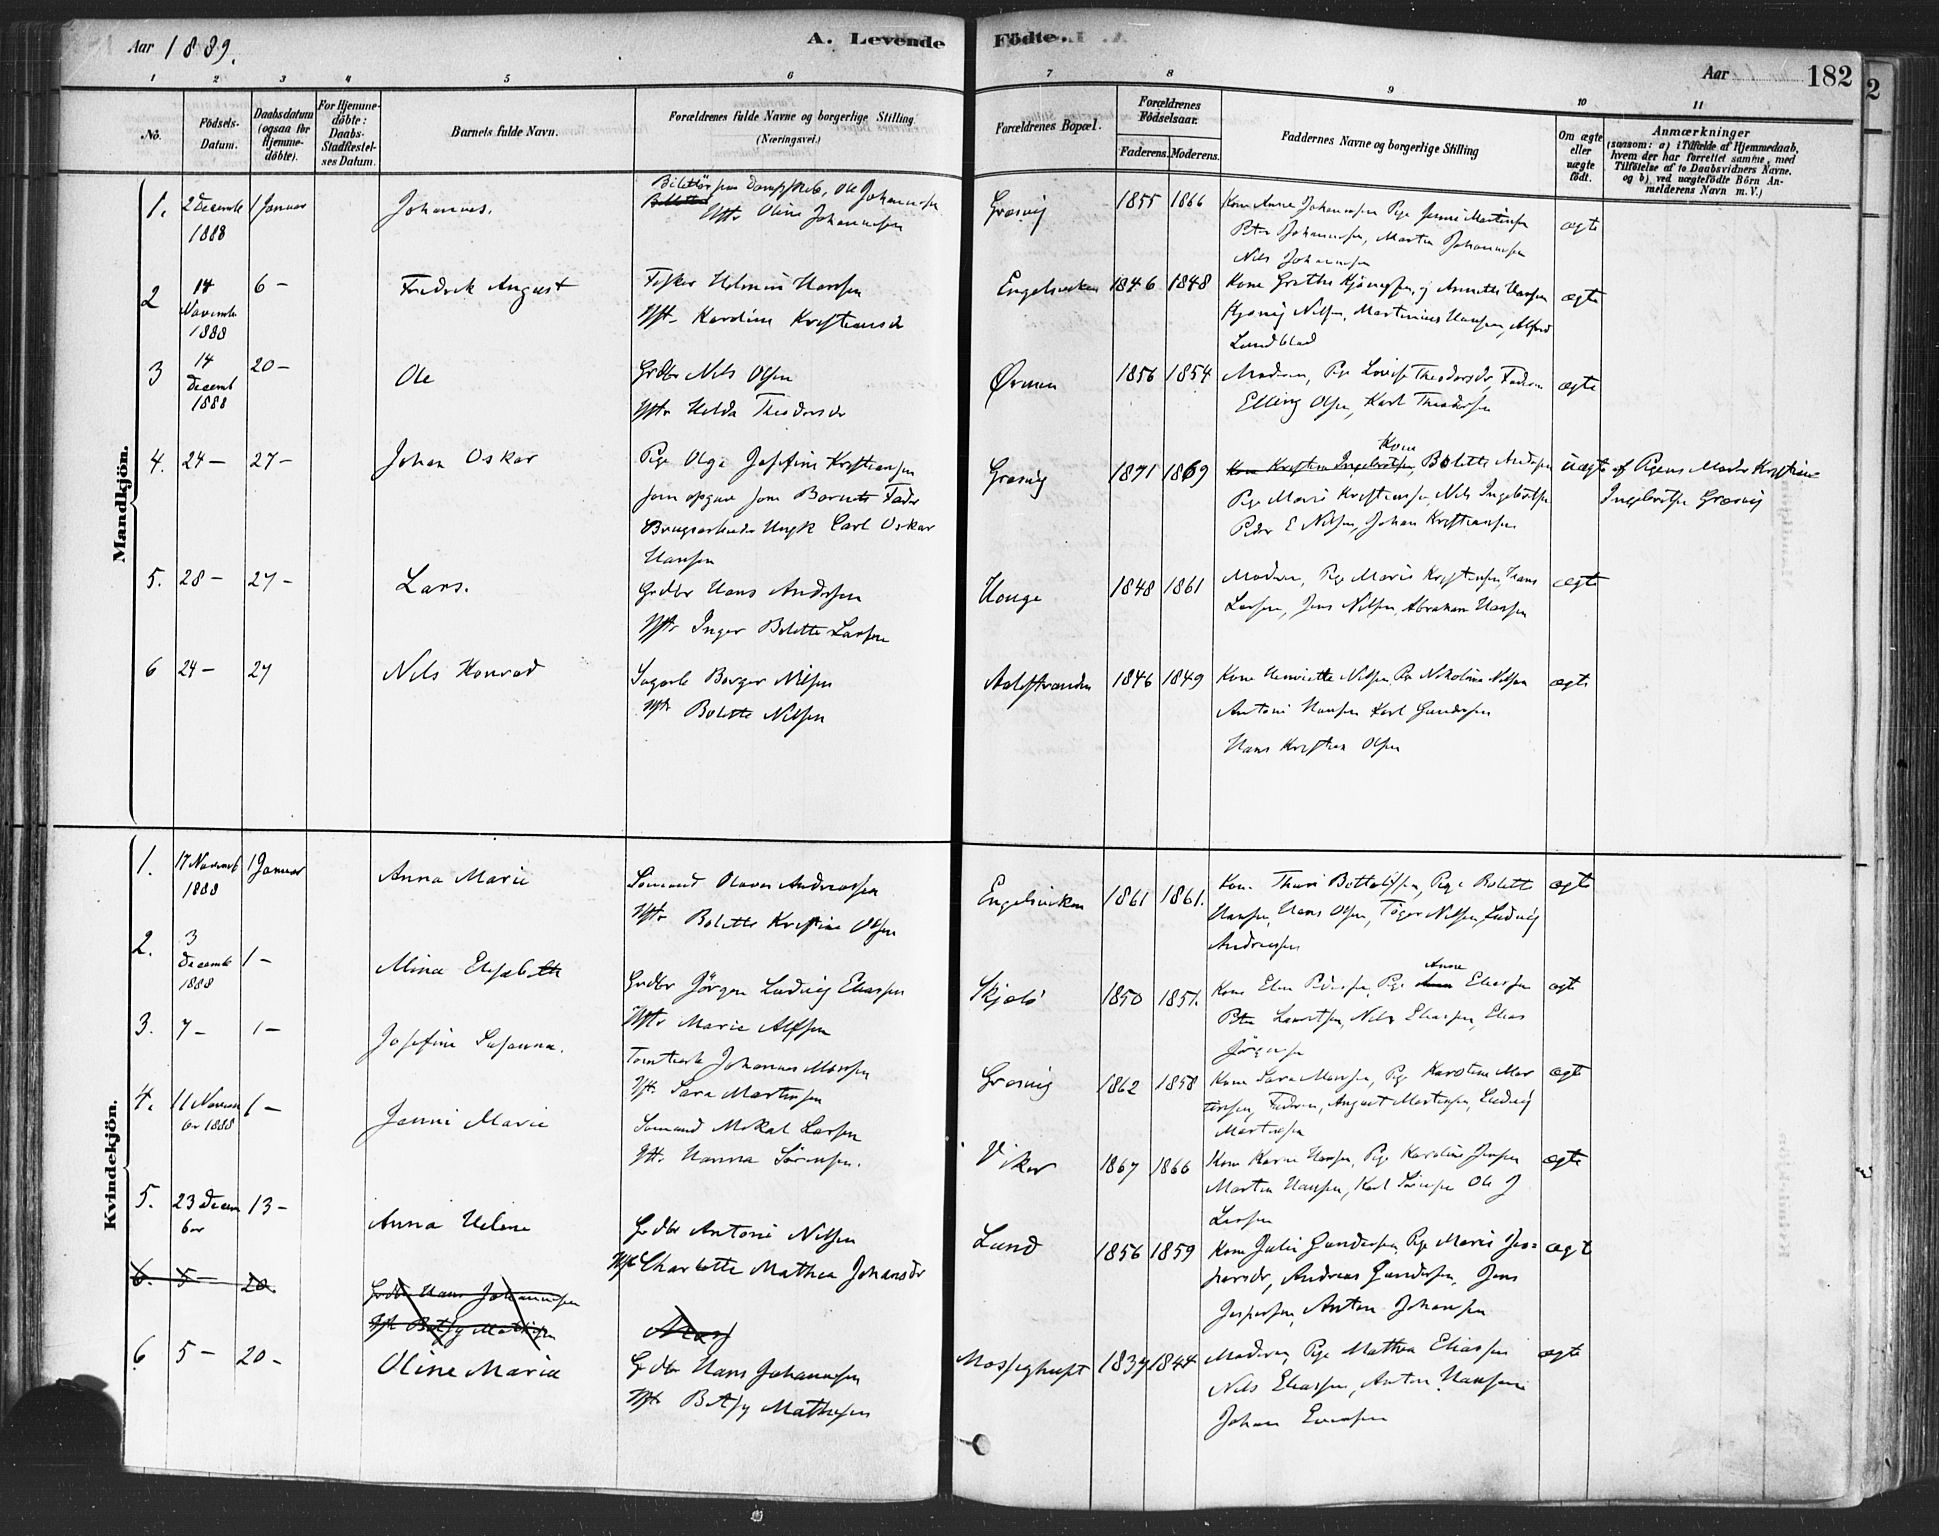 Aar 1889.
A. Levende Födte.
Aar 182
1 2 3 4 5 6 7 8 9 10 11
No.
Födsels-Datum.
Daabsdatum (ogsaa for Hjemme-döbte).
For Hjemme-döbte: Daabs-Stadfæstel-ses Datum.
Barnets fulde Navn.
Forældrenes fulde Navne og borgerlige Stilling (Næringsvei.)
Forældrenes Bopæl.
Forældrenes Födselsaar.
Faderens. Moderens.
Faddernes Navne og borgerlige Stilling
Om ægte eller uægte födt.
Anmærkninger
(saasom: a) i Tilfælde af Hjemmedaab, hvem der har forrettet samme, med Tilföielse af to Daabsvidners Navne, og b) ved uægtefödte Börn An-melderens Navn m. V.)
Mandkjön.
1. 2 Decemb 1888 1 Januar Johannes. Ole Johannessen
Hstr Oline Johannessen
Græsvig 1855 1866 Kone Anne Johannessen Pige Jenni Martinsen
Peter Johannessen, Martin Johannessen
Nils Johannessen
ægte
2 14 Novemb 1888 6 – Fredrik August Fisker Helmin Hansen
Hstr. Karoline Kristiansdr
Engelsviken 1846 1848 Kone Grethe Annette Hansen
Nilsen, Martinius Hansen, Alfred
Lundblad
ægte
3 14 Decemb 1888 20 – Ole Grdbr Nils Olsen
Hstr Helda Theodorsdr
Ørmen 1856 1854 Moderen, Pige Lovise Theodorsdr, Faderen
Elling Olsen, Karl Theodorsen
ægte
4. 24 – 27 – Johan Oskar Pige Olga Josefine Kristiansen
som opgav som Barnets Fader
Brugsarbeider Ungk Carl Oskar
Hansen
Græsvig 1871 1869 Kone Kristine Ingebretsen, Kone Bolette Andersen
Pige Marie Kristiansen, Nils Ingebretsen
Peder E Nilsen, Johan Kristiansen
uægte af Pigens Moder Kristine
Ingebretsen Græsvig
5. 28 – 27 – Lars. Grdbr Hans Andersen
Hstr Inger Bolette Larsen
Hauge 1848 1861 Moderen, Pige Marie Kristensen, Hans
Larsen, Jens Nilsen, Abraham Hansen
ægte
6 24 – 27 Nils Konrad Borger Nilsen
Hstr Bolette Nilsen
Aalestranden 1846 1849 Kone Henriette Nilsen, Pige Nikoline Nilsen
Antoni Hansen Karl Gundersen
Hans Kristian Olsen
ægte
Kvindekjön.
1. 17 Novemb 1888 1 Januar Anna Marie Sømand Olaves Andreassen
Hstr Bolette Kristine Olsen
Engelsviken 1861 1861. Kone Bottolfsen, Pige Bolette
Hansen, Hans Olsen, Tøger Nilsen, Ludvig
Andreassen
ægte
2. 3 Decemb 1888 1 – Mina Elisabeth Grdbr Jörgen Ludvig Eliassen
Hstr Marie Alfsen
Skjælø 1850 1851. Kone Elen Pedersen, Pige Anne Eliassen
Peter Lauritsen, Nils Eliassen, Elias
Jörgensen
ægte
3. 7 – 1 – Josefine Susanna. Johannes Monsen
Hstr. Sara Martinsen
Græsvig 1862 1858 Kone Sara Monsen, Pige Karoline Mar
tinsen, Faderen, August Martinsen, Ludvig
Martinsen
ægte
4. 11 Novem ber 1888 1 – Jenni Marie Sømand Mikal Larsen
Hstr Hanna Sörensen.
Viker 1867 1866 Kone Karen Hansen, Pige Karoline Jensen
Martin Hansen, Karl Sörensen Ole J
Larsen
ægte
5. 23 Decem ber 13 – Anna Helene Grdbr Antoni Nilsen
Hstr Charlotte Mathea Johansdr
Lund 1856 1859 Kone Julie Gundersen, Pige Maria Jes=
persdr, Andreas Gundersen, Jens
Jespersen, Anton Johansen
ægte
6. 5 – 20 Grdbr Hans Johannessen
Hstr Betsy Mathisen
6 5 – 20 – Oline Maria Grdbr Hans Johannessen
Hstr Betsy Mathisen
1839 1844 Moderen, Pige Mathea Eliassen
Nils Eliassen, Anton Hansen
Johan Evensen
ægte